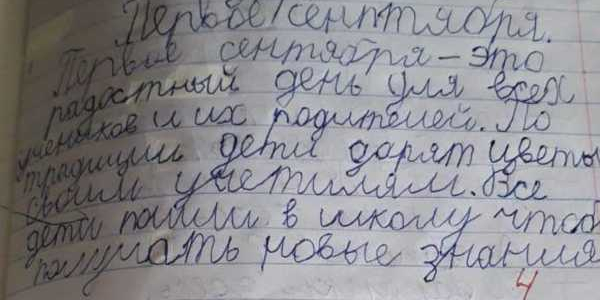 Первое сентября.
Первое сентября – это
радостный день для всех
учеников и их родителей. По
традиции дети дарят цветы
своим учетилям. Все
дети пошли в школу чтоб
получать новые знания
4